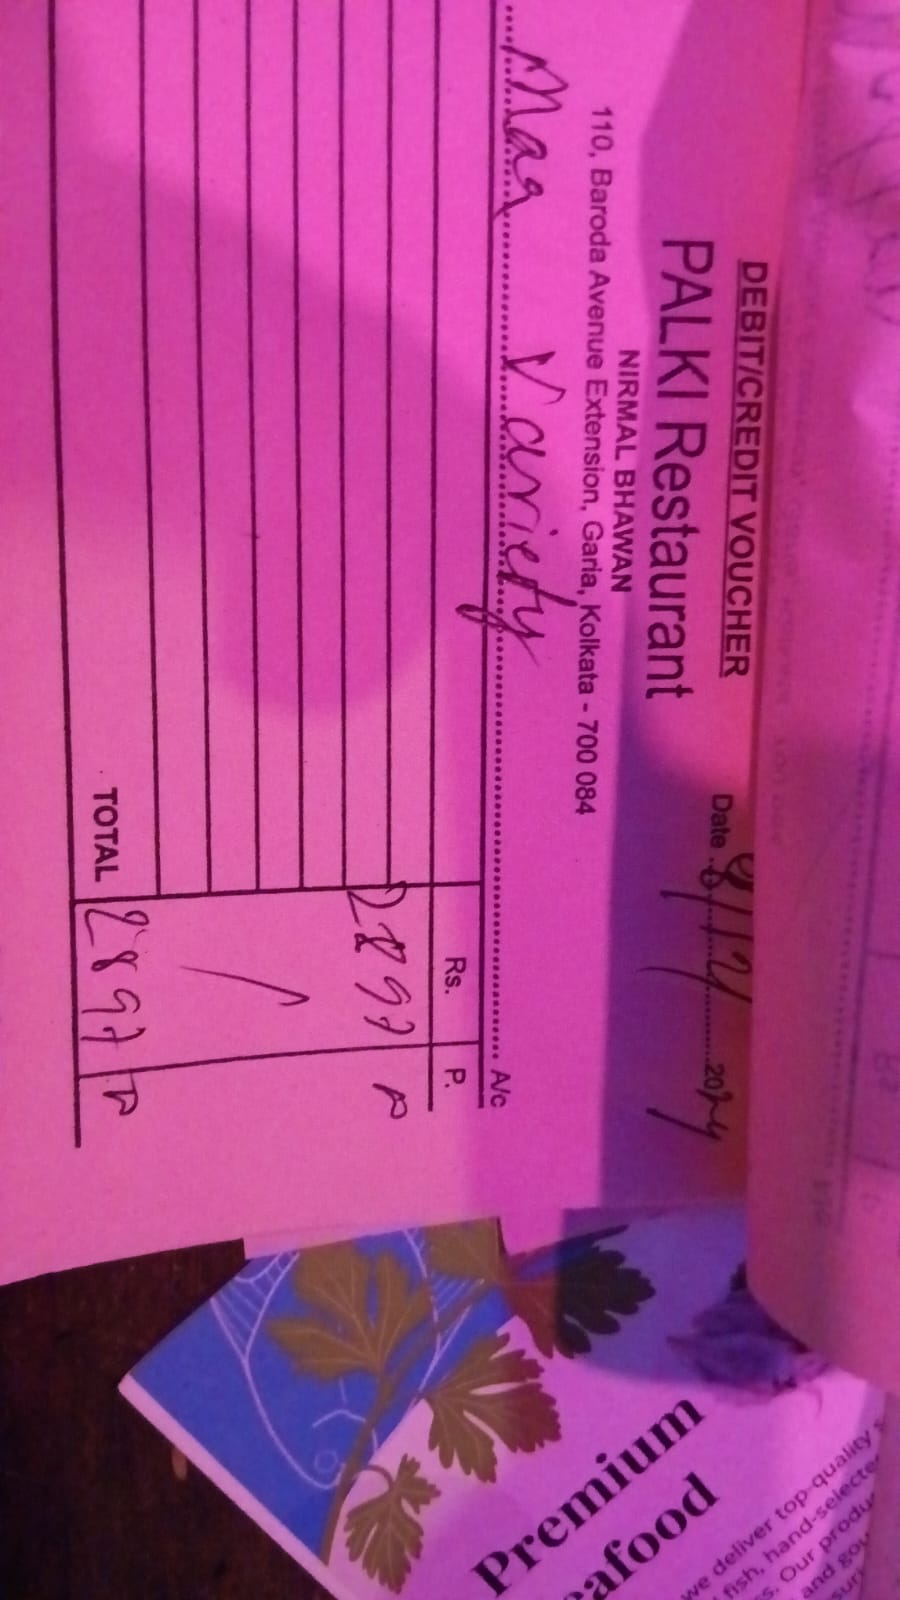 DEBIT/CREDIT VOUCHER
PALKI Restaurant
Date 8/12/2024
NIRMAL BHAWAN
110, Baroda Avenue Extension, Garia, Kolkata - 700 084
Maa Variety A/c
Rs. P.
2897
TOTAL 2897
Premium
eafood
we deliver top-quality
fish, hand-selecte
s. Our produ
and gou